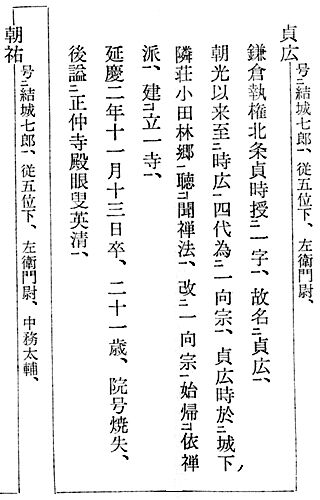 貞広 号㆓結城七郎㆒、従五位下、左衛門尉、
鎌倉執権北条貞時授㆓一字㆒、故名㆓貞広㆒、
朝光以来至㆓時広㆒四代為㆓一向宗㆒、貞広時於㆓城下、
隣荘小田林郷㆒聴㆓聞禅法㆒、改㆓一向宗㆒始帰㆓依禅
派㆒、建㆓立一寺㆒、
延慶二年十一月十三日卒、二十一歳、院号焼失、
後諡㆓正仲寺殿眼叟英清㆒、
朝祐 号㆓結城七郎㆒、従五位下、左衛門尉、中務太輔、